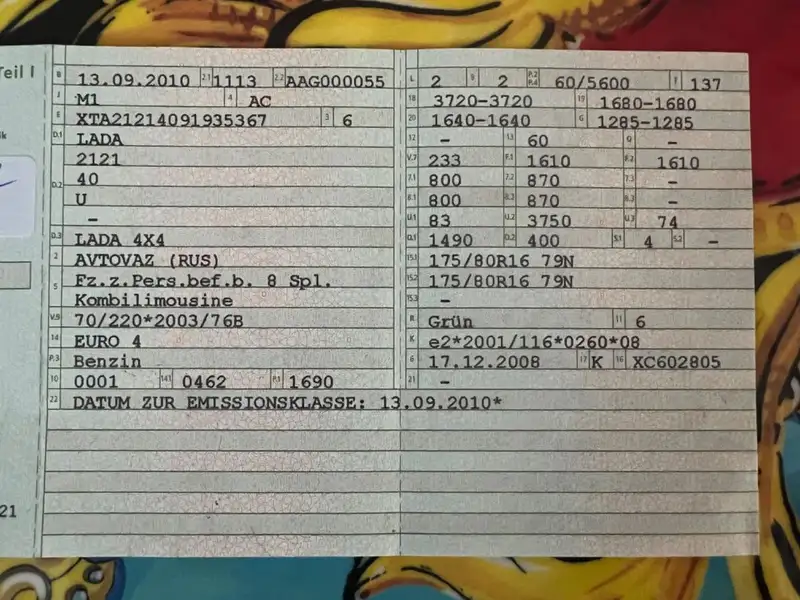 Teil I
B 13.09.2010 2.1 1113 2.2 AAG000055
J M1 4 AC
E XTA21214091935367 3 6
D.1 LADA
2121
D.2 40
U
–
D.3 LADA 4X4
2 AVTOVAZ (RUS)
5 Fz.z.Pers.bef.b. 8 Spl.
Kombilimousine
V.9 70/220*2003/76B
14 EURO 4
P.3 Benzin
10 0001 14.1 0462 P.1 1690
22 DATUM ZUR EMISSIONSKLASSE: 13.09.2010*
L 2 9 2 P.2 P.4 60/5600 T 137
18 3720-3720 19 1680-1680
20 1640-1640 G 1285-1285
12 – 13 60 Q –
V.7 233 F.1 1610 F.2 1610
7.1 800 7.2 870 7.3 –
8.1 800 8.2 870 8.3 –
U.1 83 U.2 3750 U.3 74
O.1 1490 O.2 400 S.1 4 S.2 –
15.1 175/80R16 79N
15.2 175/80R16 79N
15.3 –
R Grün 11 6
K e2*2001/116*0260*08
6 17.12.2008 17 K 16 XC602805
21 –
21